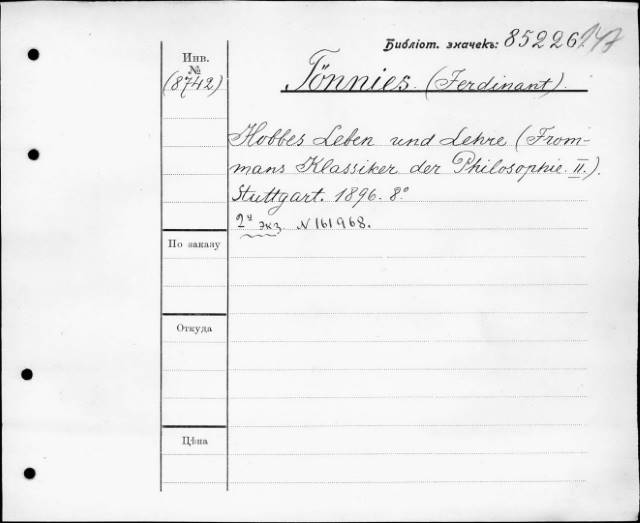 Библіот. значекъ: 85226
Инв.
№
(8742)
Tönnies. (Ferdinant).
Hobbes Leben und Lehre (From-
mans Klassiker der Philosophie. II.).
Stuttgart. 1896. 8º
2й экз. N 161968.
По заказу
Откуда
Цѣна